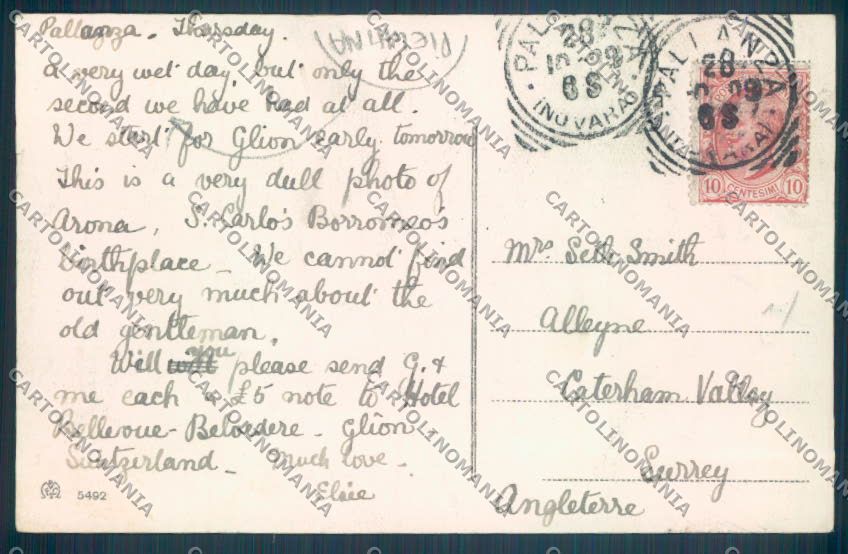 Pallanza. Thursday.
A very wet day but only the
second we have had at all.
We start for Glion early tomorrow
This is a very dull photo of
Arona, S. Carlo's Borromeo's
birthplace – We cannot find
out very much about the
old gentleman.
Will you please send G. &
me each a £5 note to Hotel
Bellevue-Belvedere – Glion
Switzerland – Much love –
Elsie
5492
PALLANZA
28
5 09
6 S
(NOVARA)
PALLANZA
28
5 09
6 S
(NOVARA)
10 CENTESIMI 10
Mrs Seth Smith
Alleyne
Caterham Valley
Surrey
Angleterre
CARTOLINOMANIA